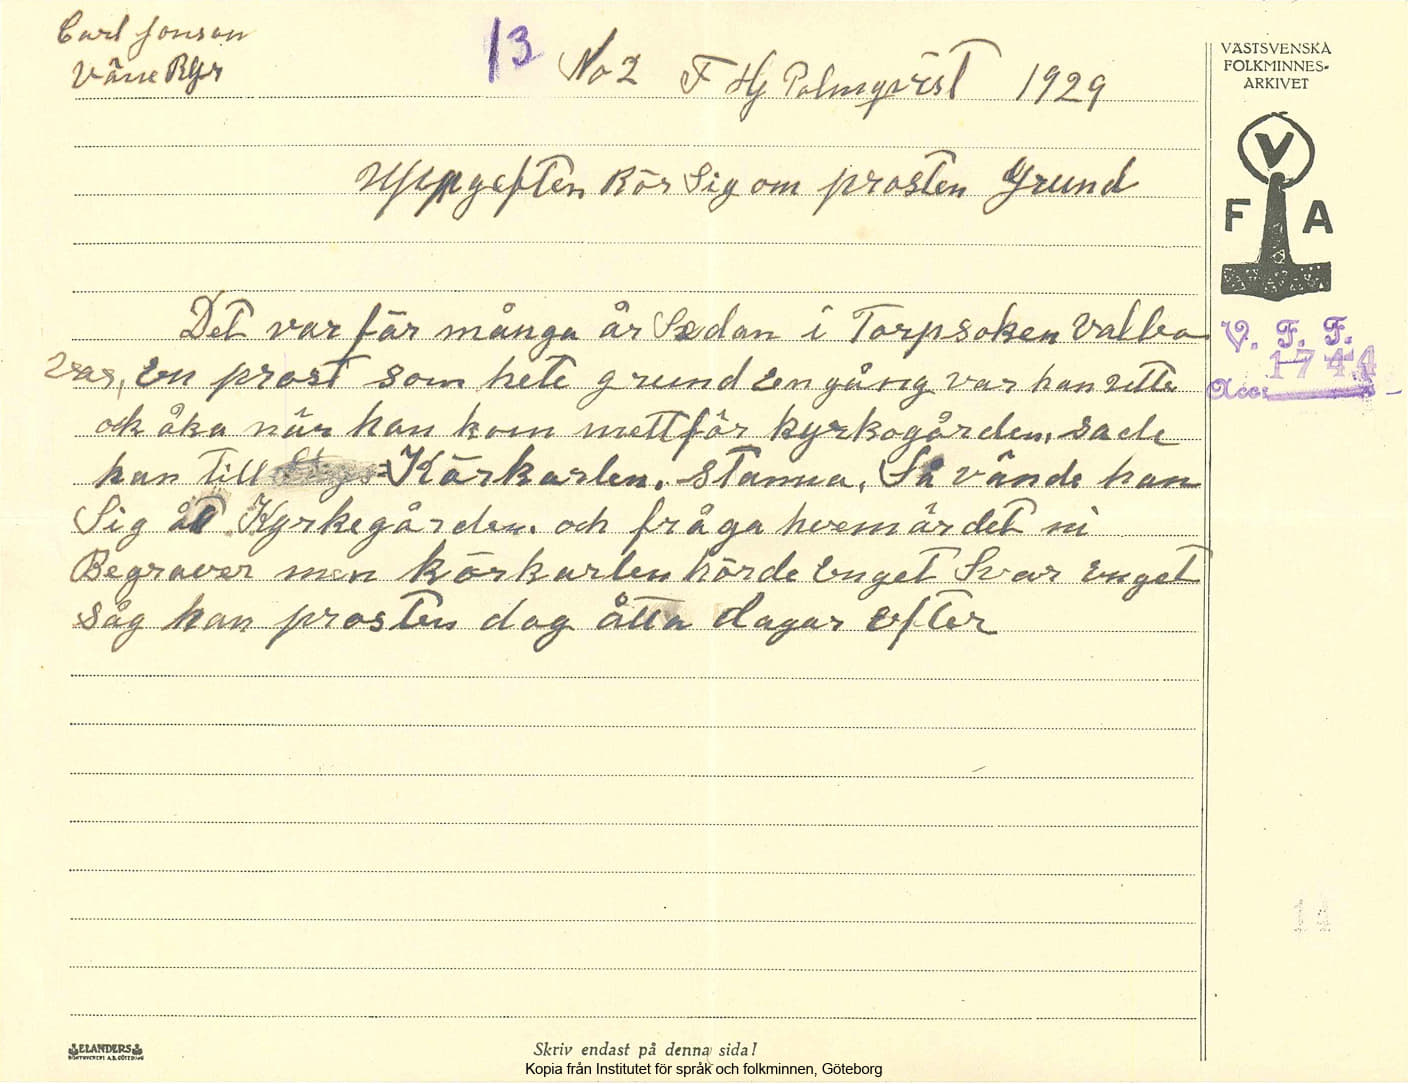 Carl Jonson
Väne Ryr
13 No 2 F Hj Palmqvist 1929
VÄSTSVENSKA
FOLKMINNES-
ARKIVET
V
F A
Uppgeften Rör Sig om prosten Grund
Det var för många år Sedan i Torpsoken Valbo
var, En prost som hete grund En gång var han
och åka när han kom mettför kyrkogården. sade
han till Körkarlen. stanna, Så vände han
Sig åt Kyrkegården. och fråga hvem är det ni
Begraver men körkarlen hörde Enget Svar Enget
såg han prosten dog åtta dagar Efter
V. F. F.
1744
Acc:
14
ELANDERS
Skriv endast på denna sida!
Kopia från Institutet för språk och folkminnen, Göteborg